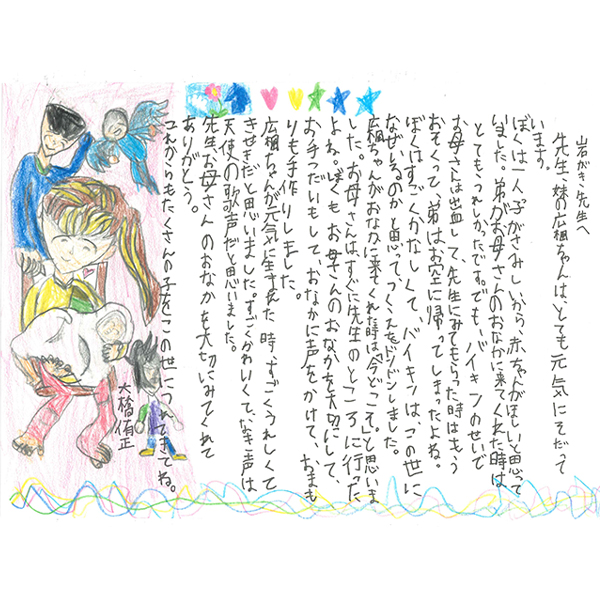 岩がき先生へ
先生、妹の広桜ちゃんは、とても元気にそだって
います。
ぼくは一人子がさみしいから、赤ちゃんがほしいと思って
いました。弟がお母さんのおなかに来てくれた時は
とてもうれしかったです。でも、バイキンのせいで
お母さんは出血して、先生にみてもらった時はもう
おそくって、弟はお空に帰ってしまったよね。
ぼくはすごくかなしくて、バイキンは、この世に
なぜいるのかと思って、つくえをドンドンしました。
広桜ちゃんがおなかに来てくれた時は、今どこそと思いま
した。お母さんは、すぐに先生のところに行った
よね。ぼくもお母さんのおなかを大切にして、
お手つだいもして、おなかに声をかけて、おまも
りも手作りしました。
広桜ちゃんが元気に生まれた時、すごくうれしくて
きせきだと思いました。すごくかわいくて、なき声は
天使の歌声だと思いました。
先生、お母さんのおなかを大切にみてくれて
ありがとう。
これからもたくさんの子をこの世につれてきてね。
大橋侑正